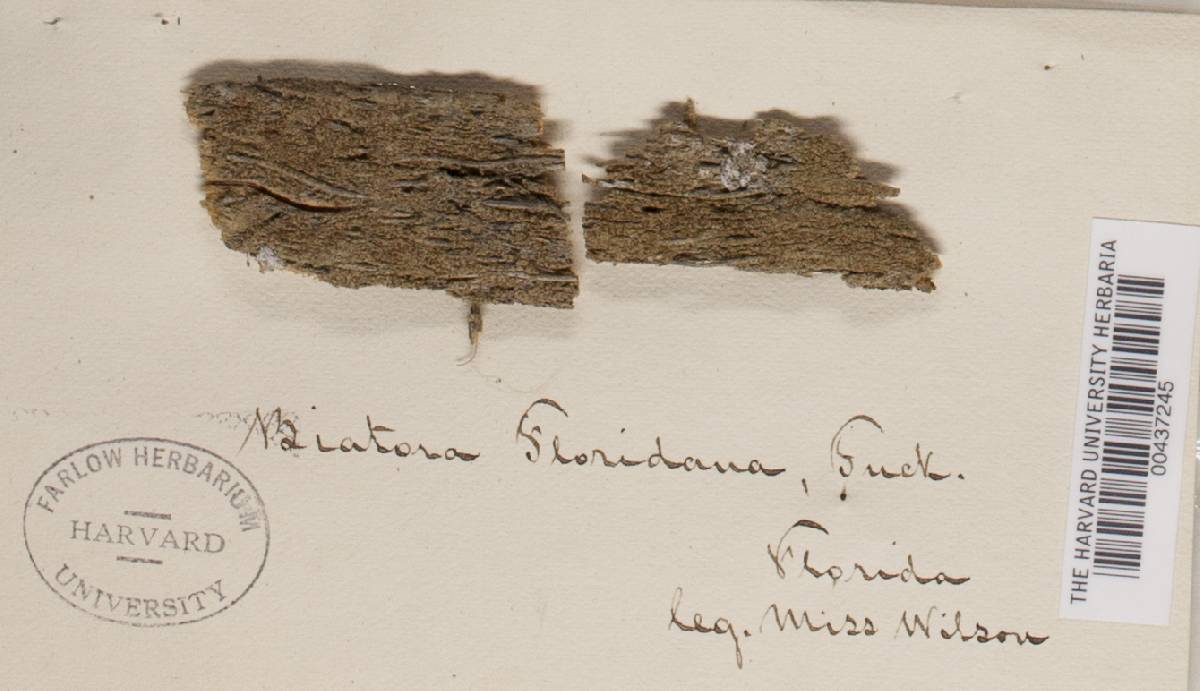 Biatora Floridana, Tuck.
Florida
leg. Miss Wilson
FARLOW HERBARIUM
HARVARD
UNIVERSITY
THE HARVARD UNIVERSITY HERBARIA
00437245